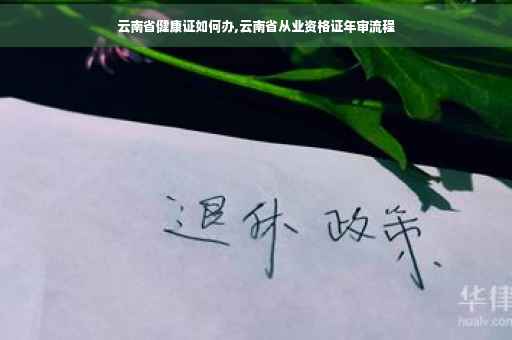 云南省健康证如何办,云南省从业资格证年审流程
退休 政策
华律
hualv.com